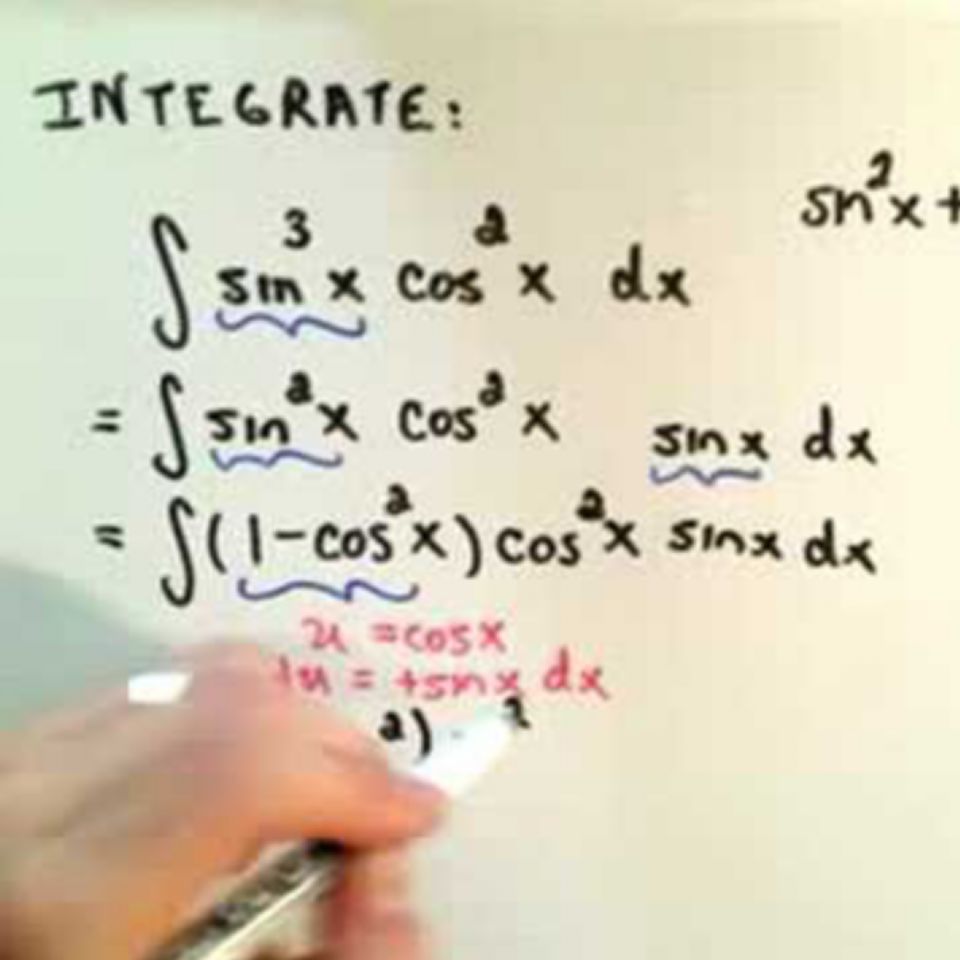 INTEGRATE:
sin²x +
∫ sin³x cos²x dx
= ∫ sin²x cos²x sinx dx
= ∫(1-cos²x) cos²x sinx dx
u = cosx
du = +sinx dx
²) ²